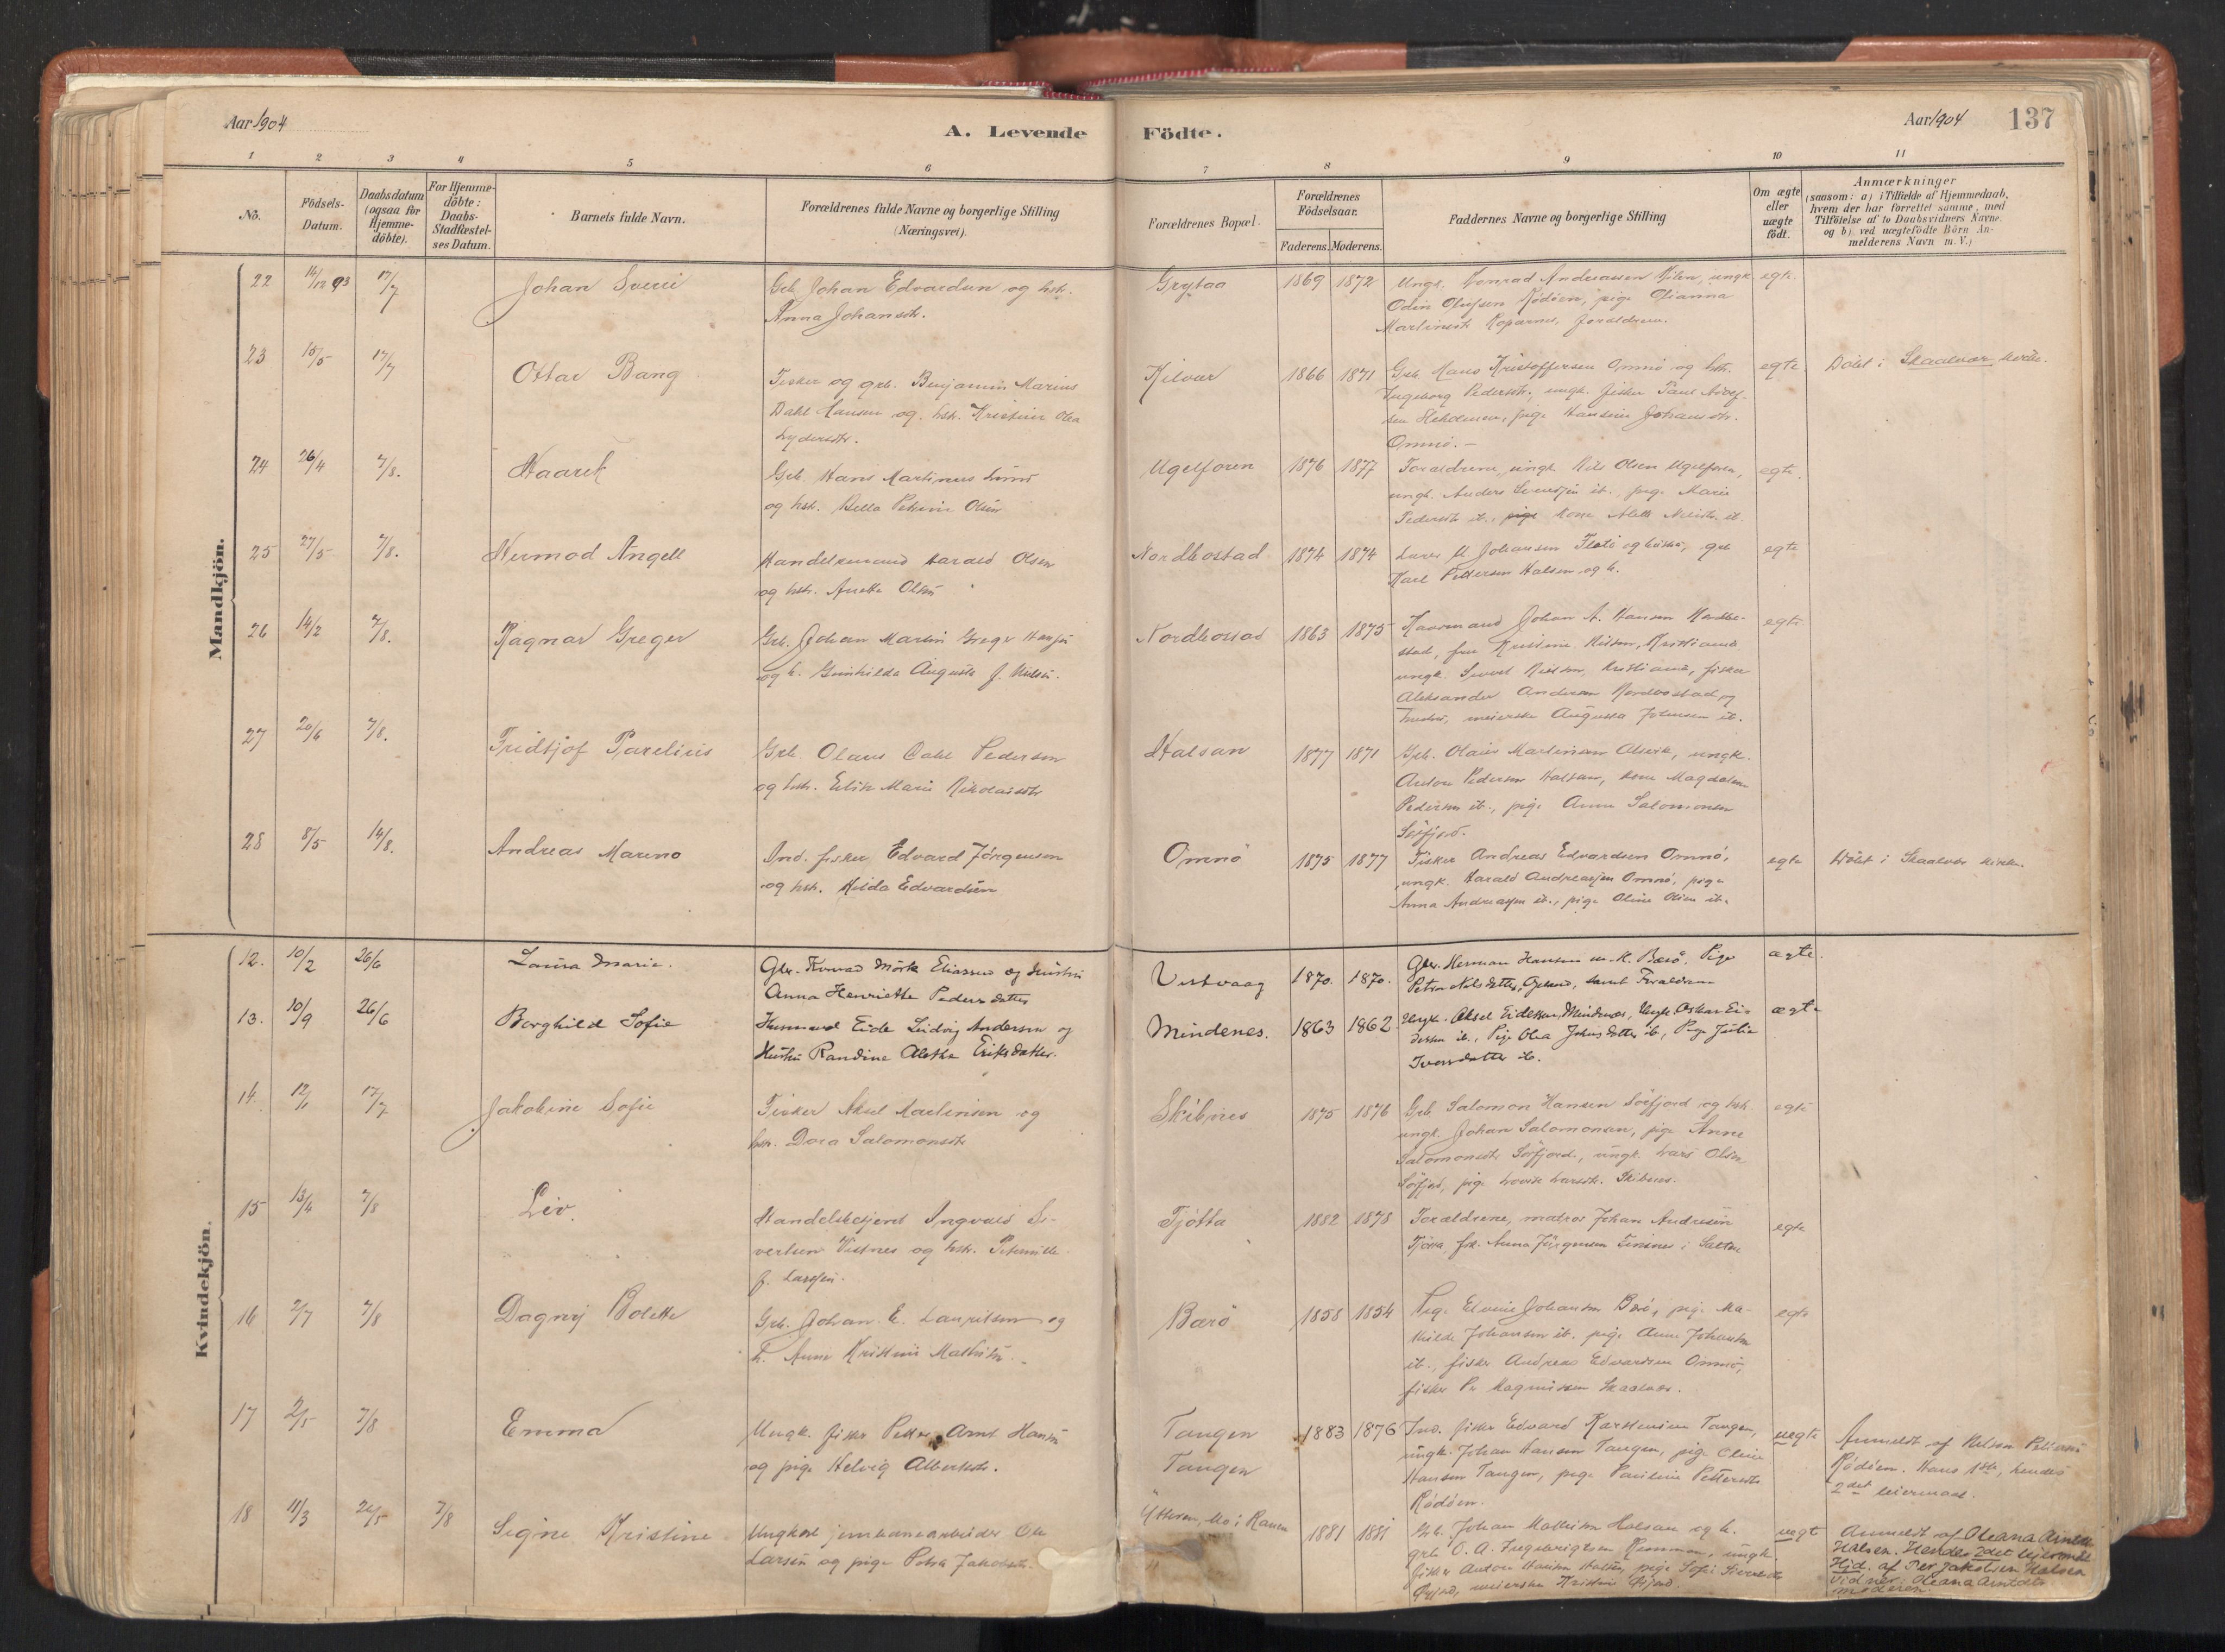 Aar 1904
A. Levende Födte.
Aar 1904 137
1 2 3 4 5 6 7 8 9 10 11
No.
Födsels-Datum.
Daabsdatum (ogsaa for Hjemme-döbte).
For Hjemme-döbte: Daabs-Stadfæstel-ses Datum.
Barnets fulde Navn.
Forældrenes fulde Navne og borgerlige Stilling (Næringsvei).
Forældrenes Bopæl.
Forældrenes Födselsaar.
Faderens. Moderens.
Faddernes Navne og borgerlige Stilling
Om ægte eller uægte födt.
Anmærkninger
(saasom: a) i Tilfælde af Hjemmedaab,
hvem der har forrettet samme, med
Tilföielse af to Daabsvidners Navne.
og b) ved uægtefödte Börn An-
melderens Navn m. V.)
Mandkjön.
22 14/12 93 17/7 Johan Sverre
Grb. Johan Edvardsen og hstr.
Anna Johansdtr.
Grytaa 1869 1872
Ungk. Konrad Andreassen Kilen, ungk.
Odin Olufsen Rødøen, pige
Martinsdtr. Forældrene.
egte
23 15/5 17/7 Ottar Bang
Fisker og grb. Benjamin Marius
Dahl Hansen og hstr. Kristine Olea
Lydersdtr.
Kilvær 1866 1871
Grb. Hans Kristoffersen Omnø og hstr.
Ingeborg Pedersdtr., ungk. fisker Paul
pige Hansine Johansdtr.
Omnø.
egte
Döbt i Skaalvær kirke.
24 26/4 7/8. Haarek
Grb. Hans Martinus Lund
og hstr. Petrine Olsen
Ugelforen 1876 1877
Forældrene, ungk. Nils Olsen Ugelforen,
ungk. Anders Svendsen ib., pige Marie
Pedersdtr. ib., kone
egte
25 27/5 7/8. Hermod Angell
Handelsmand Harald Olsen
og hstr. Anette Olsen
Nordbostad 1874 1874
Lars M Johansen og hustru, grb
Karl Pettersen Halsen og h.
egte
26 14/2 7/8. Ragnar Greger
Grb. Johan Martin Greger Hansen
og h. Gunhilda Augusta f. Nilsen.
Nordbostad 1863 1875
Johan A. Hansen Nordbo-
stad, fru Nilsen, Kristiania
ungk. Nilsen, Kristiania, fisker
Aleksander Andersen Nordbostad og
hustru, meierske Augusta Johnsen ib.
egte
27 20/6 7/8. Fridtjof Parelius
Grb. Olaus Dahl Pedersen
og hstr. Elise Marie Nikolaisdtr
Halsan 1877 1871
Grb. Olaus Martinsen Alsvik, ungk.
Anton Pedersen Halsan, kone Magdalene
Pedersen ib., pige Anna Salomonsen
Sörfjord.
28 8/5 14/8. Andreas Mareno
Ind. fisker Edvard Jörgensen
og hstr. Hilda Edvardsen
Omnö 1875 1877
Fisker Andreas Edvardsen Omnö,
ungk. Harald Andreassen Omnö, pige
Anna Andreassen ib., pige Oline Olsen ib.
egte
Döbt i Skaalvær kirke.
Kvindekjön.
12. 10/2 26/6 Laura Marie.
Gbr. Konrad Mörk Eliassen og Hustru
Anna Henriette Pedersdatter
Vistvaag 1870. 1870.
Gbr. Herman Hansen m. K. Barö. Pige
Petra Nilsdatter, samt Forældrene
ægte.
13. 10/9 26/6 Borghild Sofie
Husmand Eide Ludvig Andersen og
Hustru Randine Aletha Eriksdatter.
Mindenes. 1863 1862.
Ungk. Aksel Eidessen, Mindenes, Ungk. Oskar Ei-
dessen ib., Pige Olea Johnsdatter ib., Pige Julie
Ivarsdatter ib.
ægte
14. 12/1 17/7 Jakobine Sofie
Fisker Aksel Martinsen og
hstr. Dora Salomonsdtr
Skibnes 1875 1876
Grb Salomon Hansen Sörfjord og hstr.
ungk. Johan Salomonsen, pige Anne
Salomonsdtr. Sörfjord, ungk. Lars Olsen
Sörfjord, pige Lovise Larsdtr. Skibnes.
egte
15 13/4 7/8 Liv.
Handelsbetjent Ingvald Si-
vertsen Vistnes og hstr. Peternille
f. Larssen.
Tjötta 1882 1878
Forældrene, matros Johan Andresen
Tjötta, frk. Anna Jörgensen i Salten
egte
16 2/7 7/8 Dagny Bolette
Grb. Johan E. Lauritsen og
h. Anne Kristine Mathisen.
Barö 1858 1854
Pige Elvine Johansen Barö, pige Ma-
thilde Johansen ib. pige Anne Johansen
ib., fisker Andreas Edvardsen Omnö,
fisker Per Magnussen Skaalvær.
egte
17 2/5 7/8 Emma
Ungk. fisker Petter Arnt Hansen
og pige Helvig Albertsdtr.
Tangen
Tangen
1883 1876
Ind. fisker Edvard Karstensen Tangen,
ungk. Johan Hansen Tangen, pige Oline
Hansen Tangen, pige Pauline Pettersdtr
Rödöen.
uegte
Anmeldt af Nelson Pettersen
Rödöen. Hans 1ste, hendes
2det leiermaal.
18 11/3 24/5 7/8 Signe Kristine
Ungkarl jernbanearbeider Ole
Larsen og pige Petra Jakobsdtr.
Ytteren, Mo i Ranen
1881 1881
Grb. Johan Mathisen Halsan og h.
grb O. A. Ingebrigtsen ungk.
fisker Anton Hansen pige Sofie Sivertsdtr
meierske Kristine
uegte
Anmeldt af Oleana Arntdtr
Halsen. Hendes 2det leiermaal
Hjd. af Per Jakobsen Halsen
Vidner: Oleana Arntdtr
moderen